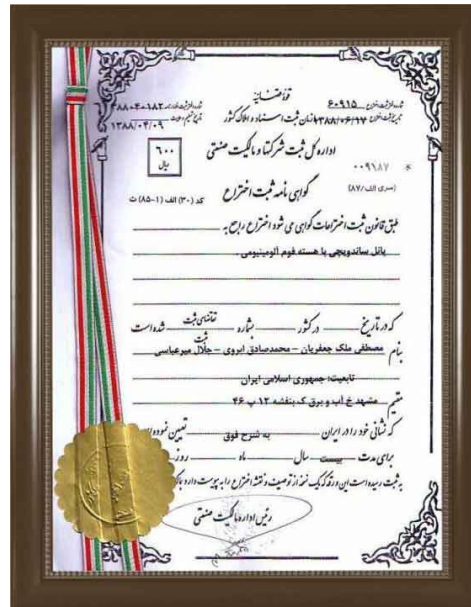 قوه قضائیه
شماره ثبت اختراع ۶۰۹۱۵
تاریخ ثبت اختراع ۱۳۸۸/۰۶/۱۷
سازمان ثبت اسناد و املاک کشور
۱۳۸۸/۰۴/۰۹
اداره کل ثبت شرکتها و مالکیت صنعتی
۶۰۰ ریال
۰۰۹۱۸۷
گواهی نامه ثبت اختراع
(سری الف/۸۷)
کد (۳۰) الف (۱-۸۵) ث
طبق قانون ثبت اختراعات گواهی می شود اختراع راجع به
پانل ساندویچی با هسته فوم آلومینیومی .
که در تاریخ در کشور بشماره تقاضای ثبت شده است
ثبت
بنام مصطفی ملک جعفریان - محمدصادق ابروی - جلال میرعباسی
تابعیت: جمهوری اسلامی ایران
مقیم مشهد خ آب و برق ک بنفشه ۱۲ پ ۴۶
که نشانی خود را در ایران به شرح فوق تعیین نموده
برای مدت بیست سال ماه روز
به ثبت رسیده است این ورقه که یک نسخه از توصیف و نقشه اختراع را به پیوست دارد
رئیس اداره مالکیت صنعتی